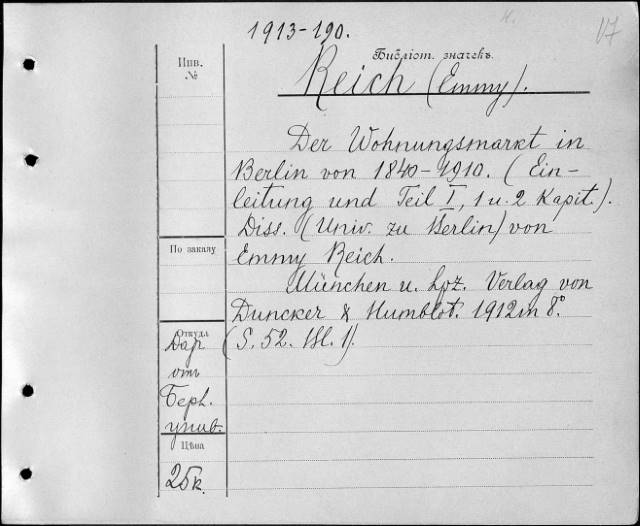 1913-190.
V7
Инв.
№
Библіот. значекъ.
Reich (Emmy).
Der Wohnungsmarkt in
Berlin von 1840-1910. (Ein-
leitung und Teil I, 1 u. 2 Kapit.).
Diss. (Univ. zu Berlin) von
Emmy Reich.
München u. Lpz. Verlag von
Duncker & Humblot. 1912 in 8°.
(S. 52. Bl. 1).
По заказу
Откуда
Дар
отъ
Берл.
унив.
Цѣна
25к.